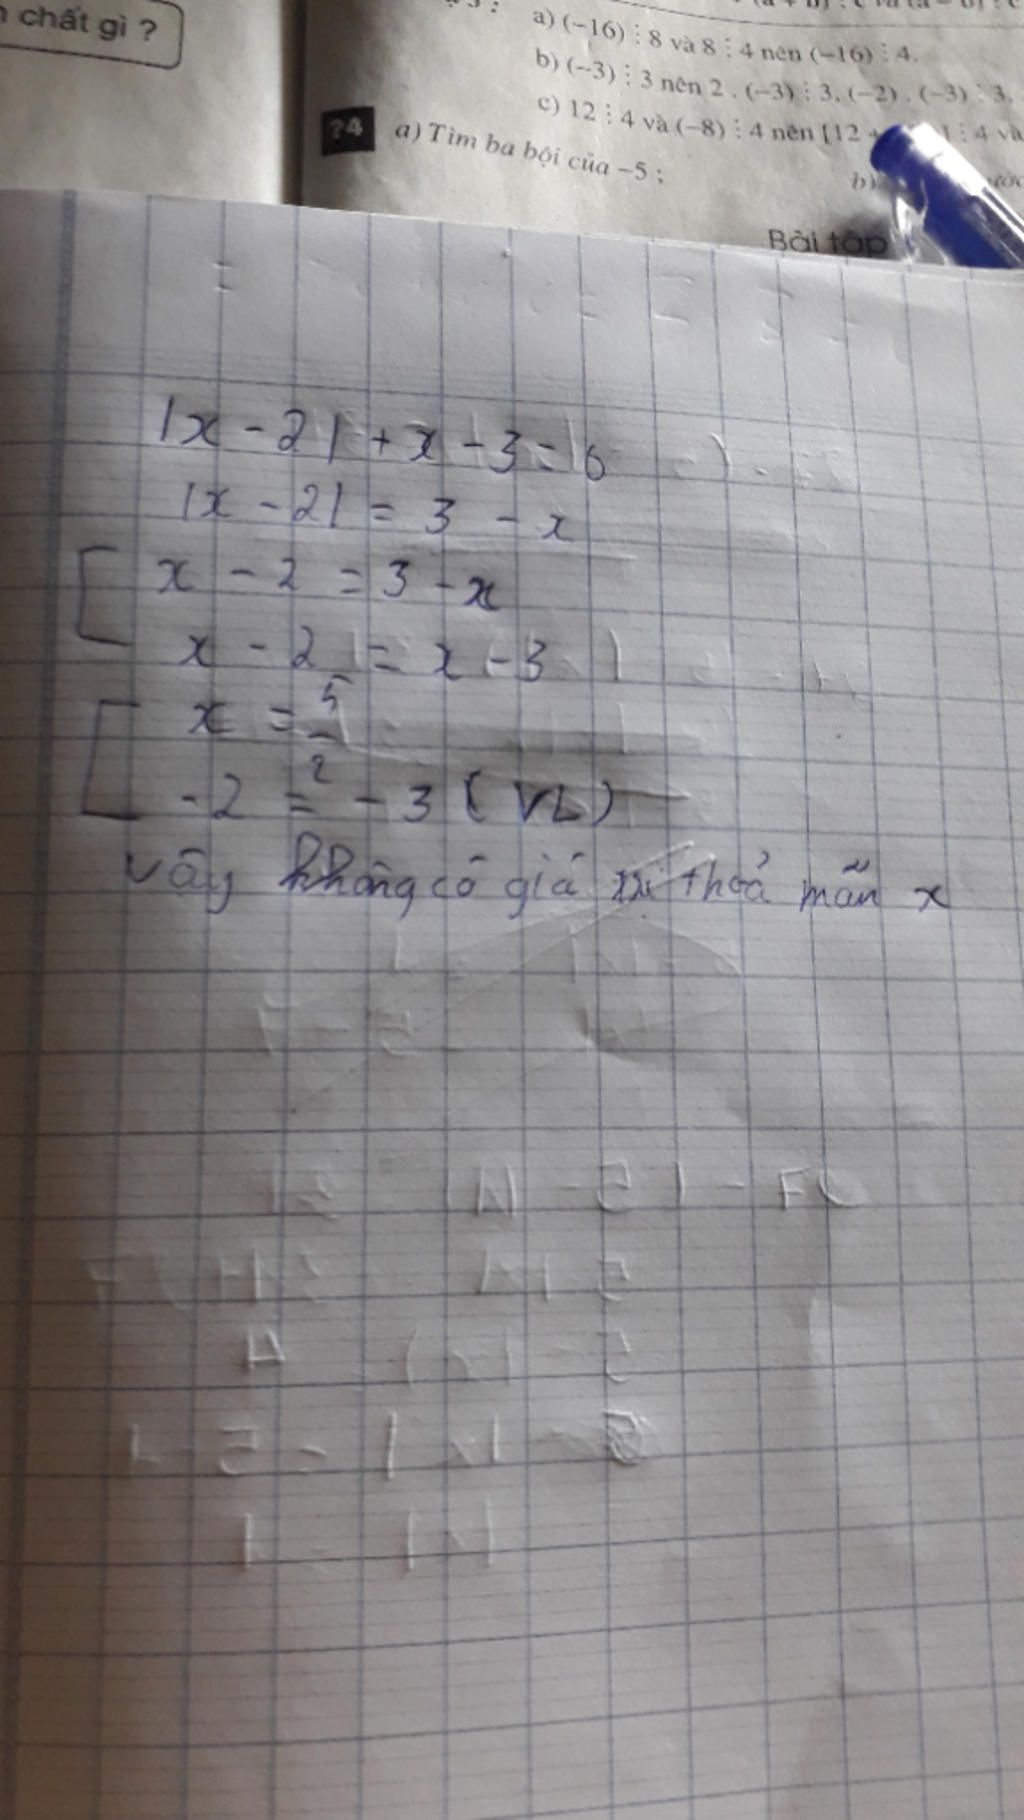 chất gì ?
a) (−16) ⋮ 8 và 8 ⋮ 4 nên (−16) ⋮ 4.
b) (−3) ⋮ 3 nên 2 . (−3) ⋮ 3, (−2) . (−3) ⋮ 3.
c) 12 ⋮ 4 và (−8) ⋮ 4 nên [12 + ⋮ 4 và
?4 a) Tìm ba bội của −5 ; b)
Bài tập
|x - 2| + x - 3 = 0
|x - 2| = 3 - x
x - 2 = 3 - x
x - 2 = x - 3
x = 5/2
-2 = -3 (VL)
vậy không có giá trị thoả mãn x